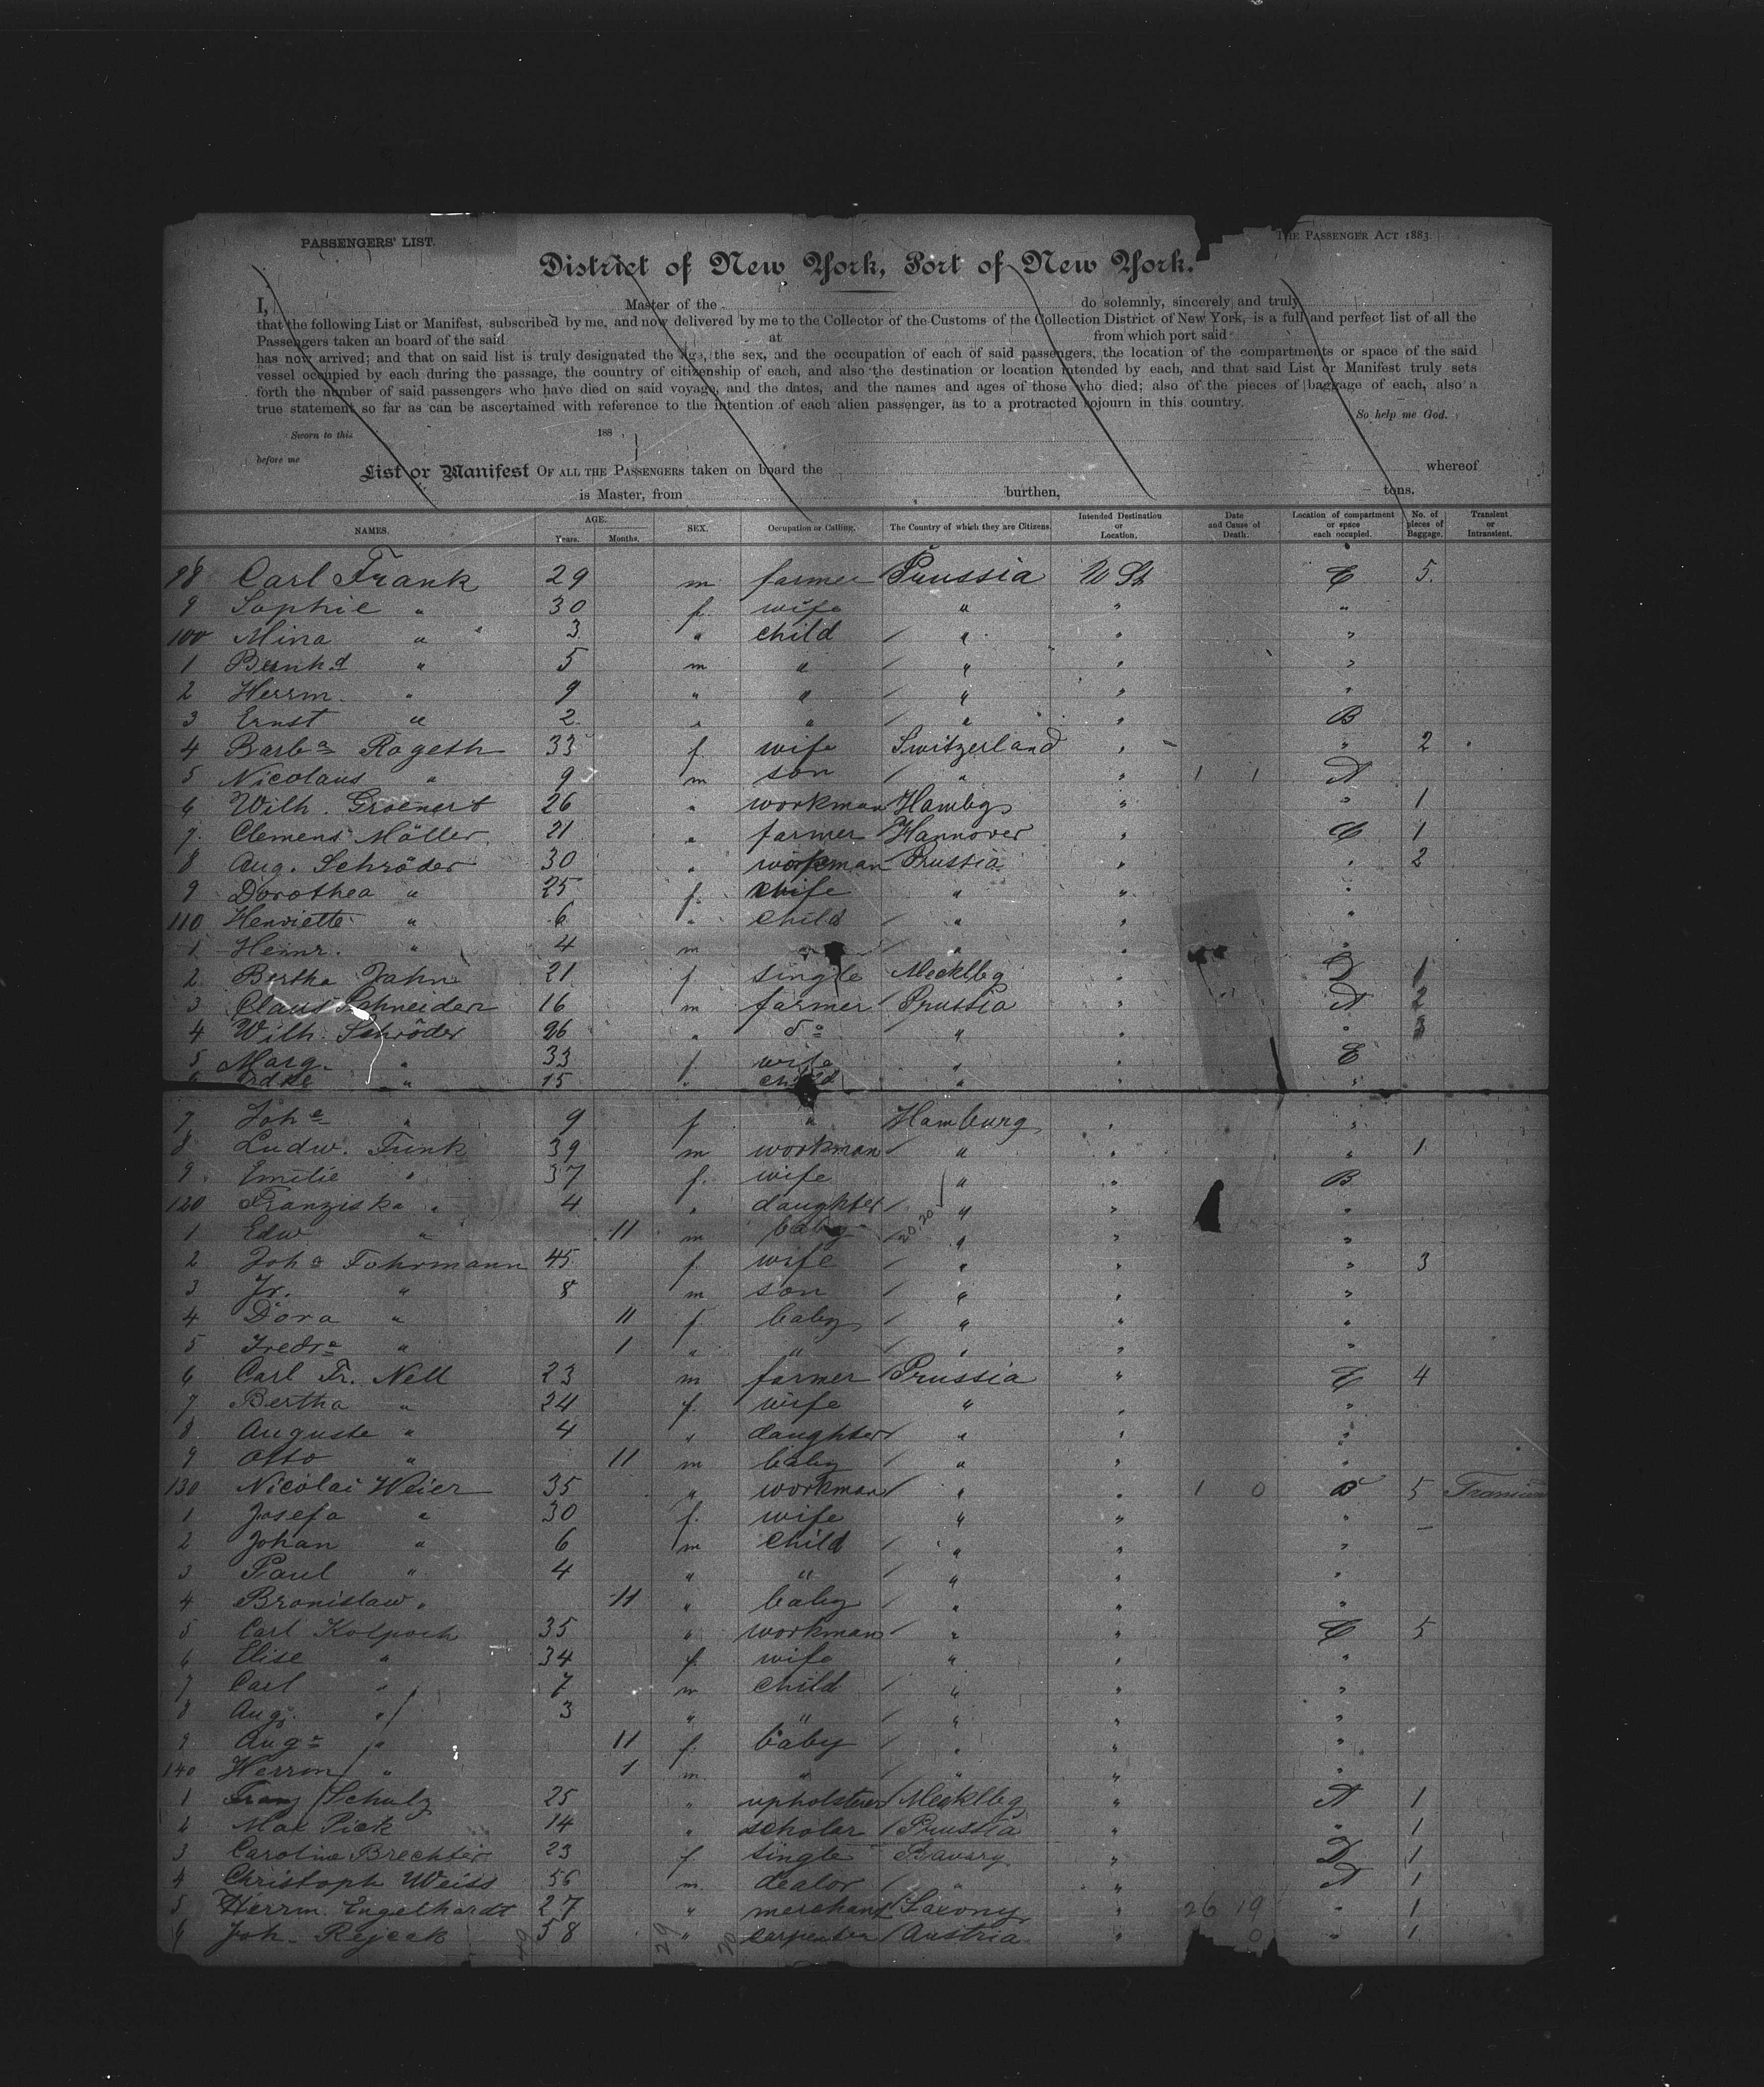 PASSENGERS' LIST.
THE PASSENGER ACT 1883.
District of New York, Port of New York.
I, Master of the do solemnly, sincerely and truly
that the following List or Manifest, subscribed by me, and now delivered by me to the Collector of the Customs of the Collection District of New York, is a full and perfect list of all the
Passengers taken an board of the said at from which port said
has now arrived; and that on said list is truly designated the age, the sex, and the occupation of each of said passengers, the location of the compartments or space of the said
vessel occupied by each during the passage, the country of citizenship of each, and also the destination or location intended by each, and that said List or Manifest truly sets
forth the number of said passengers who have died on said voyage, and the dates, and the names and ages of those who died; also of the pieces of baggage of each, also a
true statement so far as can be ascertained with reference to the intention of each alien passenger, as to a protracted sojourn in this country.
So help me God.
Sworn to this 188
before me
List or Manifest OF ALL THE PASSENGERS taken on board the whereof
is Master, from burthen, tons.
NAMES. AGE. Years. Months. SEX. Occupation or Calling. The Country of which they are Citizens. Intended Destination or Location. Date and Cause of Death. Location of compartment or space each occupied. No. of pieces of Baggage. Transient or Intransient.
98 Carl Frank 29 m farmer Prussia U St C 5.
9 Sophie " 30 f. wife " " "
100 Mina " 3 " child " " "
1 Bernhd " 5 m " " " "
2 Herrm. " 9 " " " " "
3 Ernst " 2 " " " " B
4 Barba Rageth 33 f. wife Switzerland " " 2
5 Nicolaus " 9 m son " " 1 1 A
6 Wilh. Groenert 26 " workman Hambg " " 1
7. Clemens Möller 21 " farmer Hannover " C 1
8 Aug. Schröder 30 " workman Prussia " " 2
9 Dorothea " 25 f. wife " " "
110 Henriette " 6 " child " " "
1 Heinr. " 4 m " " " "
2 Bertha Jahn 21 f single Mecklbg " D 1
3 Claus Schneider 16 m farmer Prussia " A 2
4 Wilh. Schröder 26 " do " " " 3
5 Marg. " 33 f wife " " E
6 " 15 " child " " "
7 Johe " 9 f " Hamburg " "
8 Ludw. Funk 39 m workman " " " 1
9 Emilie " 37 f. wife " " B
120 Franziska " 4 " daughter " " "
1 Edw " 11 m baby " " "
2 Joha Fohrmann 45 f wife " " " 3
3 Fr. " 8 m son " " "
4 Dora " 11 f baby " " "
5 Fredre " 1 " " " " "
6 Carl Fr. Nell 23 m farmer Prussia " C 4
7 Bertha " 24 f. wife " " "
8 Auguste " 4 " daughter " " "
9 Otto " 11 m baby " " "
130 Nicolai Weier 35 " workman " " 1 0 B 5
1 Josefa " 30 f. wife " " "
2 Johan " 6 m child " " "
3 Paul " 4 " " " " "
4 Bronislaw " 11 " baby " " "
5 Carl Kolpoch 35 " workman " " C 5
6 Elise " 34 f. wife " " "
7 Carl " 7 m child " " "
8 Aug. " 3 " " " " "
9 Auge " 11 f. baby " " "
140 Herrm " 1 m " " " "
1 Franz Schulz 25 " upholsterer Mecklbg " A 1
2 Max Pick 14 " scholar Prussia " " 1
3 Caroline Brechter 23 f. single Bavary " D 1
4 Christoph Weiss 56 m. dealer " " A 1
5 Herrm. Engelhardt 27 " merchant Saxony " 26 19 " 1
6 Joh. Rejcek 58 " carpenter Austria " 0 " 1